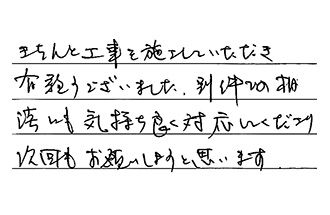 きちんと工事を施工していただき
有難うございました。別件での相
談にも気持ち良く対応してくださり
次回もお願いしようと思います